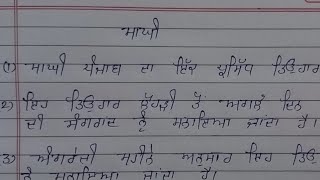 ਮਾਘੀ
(1) ਮਾਘੀ ਪੰਜਾਬ ਦਾ ਇੱਕ ਪ੍ਰਸਿੱਧ ਤਿਉਹਾਰ
2) ਇਹ ਤਿਉਹਾਰ ਲੋਹੜੀ ਤੋਂ ਅਗਲੇ ਦਿਨ
ਦੀ ਸੰਗਰਾਦ ਨੂੰ ਮਨਾਇਆ ਜਾਂਦਾ ਹੈ।
(3) ਅੰਗਰੇਜ਼ੀ ਮਹੀਨੇ ਅਨੁਸਾਰ ਇਹ ਤਿਉ
ਨੂੰ ਮਨਾਇਆ ਜਾਂਦਾ ਹੈ।